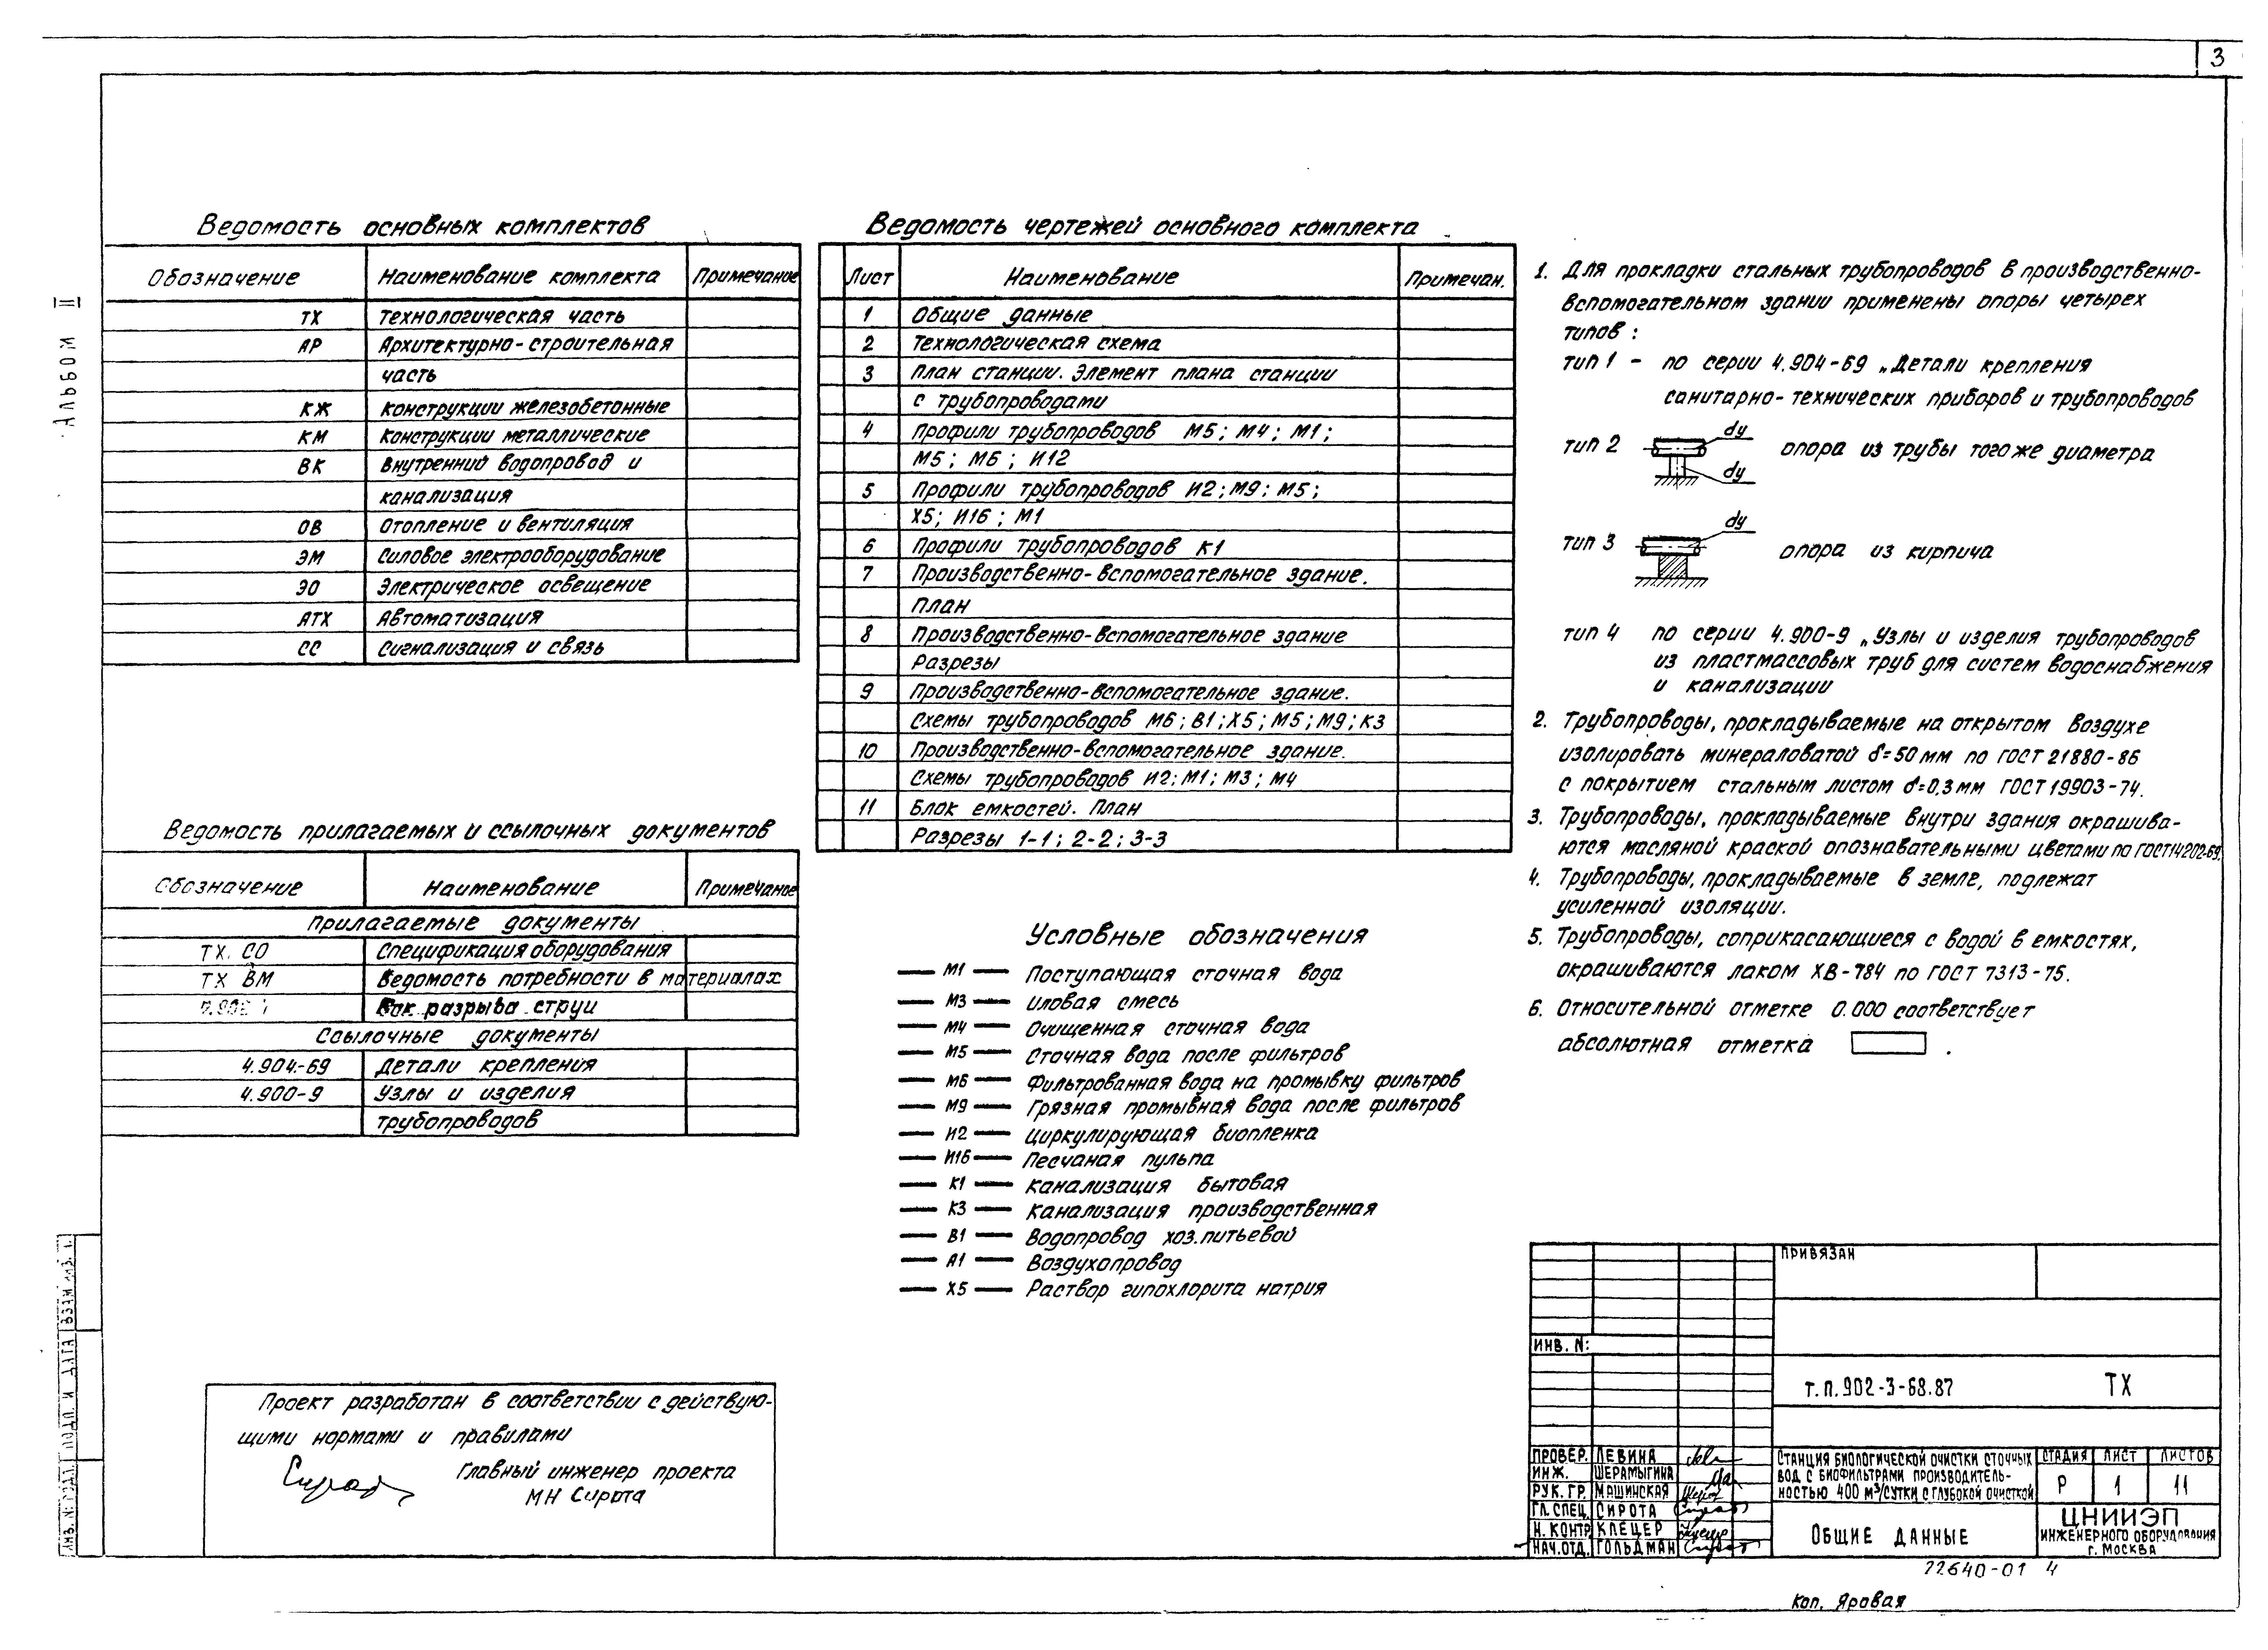 3
Альбом II
Ведомость основных комплектов
Обозначение Наименование комплекта Примечание
ТХ Технологическая часть
АР Архитектурно-строительная
часть
КЖ Конструкции железобетонные
КМ Конструкции металлические
ВК Внутренний водопровод и
канализация
ОВ Отопление и вентиляция
ЭМ Силовое электрооборудование
ЭО Электрическое освещение
АТХ Автоматизация
СС Сигнализация и связь
Ведомость прилагаемых и ссылочных документов
Обозначение Наименование Примечание
Прилагаемые документы
ТХ. СО Спецификация оборудования
ТХ ВМ Ведомость потребности в материалах
Бак разрыва струи
Ссылочные документы
4.904-69 Детали крепления
4.900-9 Узлы и изделия
трубопроводов
Проект разработан в соответствии с действую-
щими нормами и правилами
Главный инженер проекта
МН Сирота
Ведомость чертежей основного комплекта
Лист Наименование Примечан.
1 Общие данные
2 Технологическая схема
3 План станции. Элемент плана станции
с трубопроводами
4 Профили трубопроводов М5; М4; М1;
М5; М6; И12
5 Профили трубопроводов И2; М9; М5;
Х5; И16; М1
6 Профили трубопроводов К1
7 Производственно-вспомогательное здание.
План
8 Производственно-вспомогательное здание
Разрезы
9 Производственно-вспомогательное здание.
Схемы трубопроводов М6; В1; Х5; М5; М9; К3
10 Производственно-вспомогательное здание.
Схемы трубопроводов И2; М1; М3; М4
11 Блок емкостей. План
Разрезы 1-1; 2-2; 3-3
Условные обозначения
М1 Поступающая сточная вода
М3 Иловая смесь
М4 Очищенная сточная вода
М5 Сточная вода после фильтров
М6 Фильтрованная вода на промывку фильтров
М9 Грязная промывная вода после фильтров
И2 Циркулирующая биопленка
И16 Песчаная пульпа
К1 Канализация бытовая
К3 Канализация производственная
В1 Водопровод хоз.питьевой
А1 Воздухопровод
Х5 Раствор гипохлорита натрия
1. Для прокладки стальных трубопроводов в производственно-
вспомогательном здании применены опоры четырех
типов:
тип 1 - по серии 4.904-69 „Детали крепления
санитарно-технических приборов и трубопроводов
dу
тип 2 опора из трубы тогоже диаметра
dу
dу
тип 3 опора из кирпича
тип 4 по серии 4.900-9 „Узлы и изделия трубопроводов
из пластмассовых труб для систем водоснабжения
и канализации
2. Трубопроводы, прокладываемые на открытом воздухе
изолировать минераловатой δ=50мм по ГОСТ 21880-86
с покрытием стальным листом δ=0,3мм ГОСТ 19903-74.
3. Трубопроводы, прокладываемые внутри здания окрашива-
ются масляной краской опознавательными цветами по ГОСТ14202-69.
4. Трубопроводы, прокладываемые в земле, подлежат
усиленной изоляции.
5. Трубопроводы, соприкасающиеся с водой в емкостях,
окрашиваются лаком ХВ-784 по ГОСТ 7313-75.
6. Относительной отметке 0.000 соответствует
абсолютная отметка .
ПРИВЯЗАН
ИНВ. N:
Т.П.902-3-68.87 ТХ
ПРОВЕР. ЛЕВИНА
ИНЖ. ШЕРАМЫГИНА
РУК. ГР. МАШИНСКАЯ
ГЛ.СПЕЦ. СИРОТА
Н. КОНТР КЛЕЦЕР
НАЧ.ОТД. ГОЛЬДМАН
СТАНЦИЯ БИОЛОГИЧЕСКОЙ ОЧИСТКИ СТОЧНЫХ
ВОД С БИОФИЛЬТРАМИ ПРОИЗВОДИТЕЛЬ-
НОСТЬЮ 400 М³/СУТКИ С ГЛУБОКОЙ ОЧИСТКОЙ
СТАДИЯ ЛИСТ ЛИСТОВ
Р 1 11
ОБЩИЕ ДАННЫЕ
ЦНИИЭП
ИНЖЕНЕРНОГО ОБОРУДОВАНИЯ
Г. МОСКВА
22640-01 4
Коп. Яровая
ИНВ. N ПОДЛ. ПОДП. И ДАТА ВЗАМ. ИНВ.